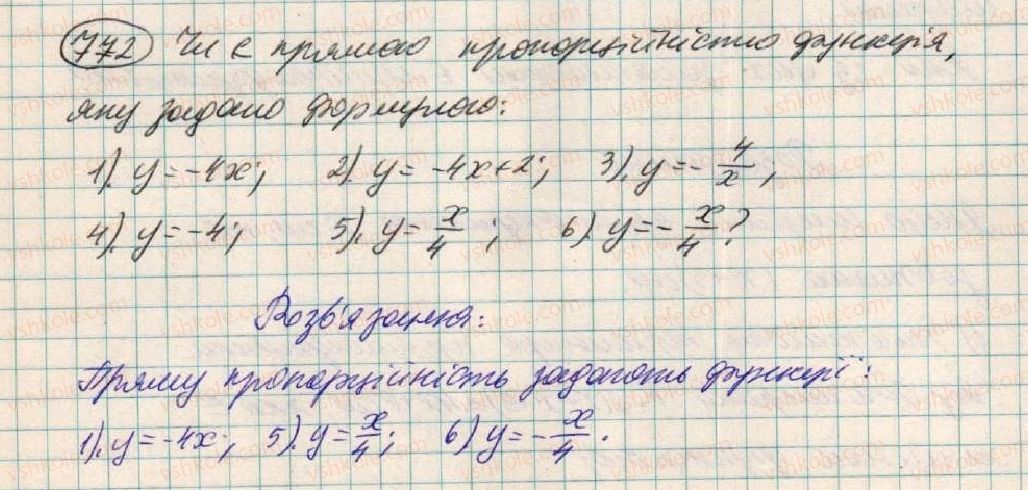 772 Чи є прямою пропорційністю функція,
яку задано формулою:
1). y = -4x; 2). y = -4x+2; 3). y = - 4/x;
4). y = -4; 5). y = x/4; 6). y = - x/4?
Розв'язання:
Пряму пропорційність задають функції:
1). y = -4x; 5). y = x/4; 6) y = - x/4.